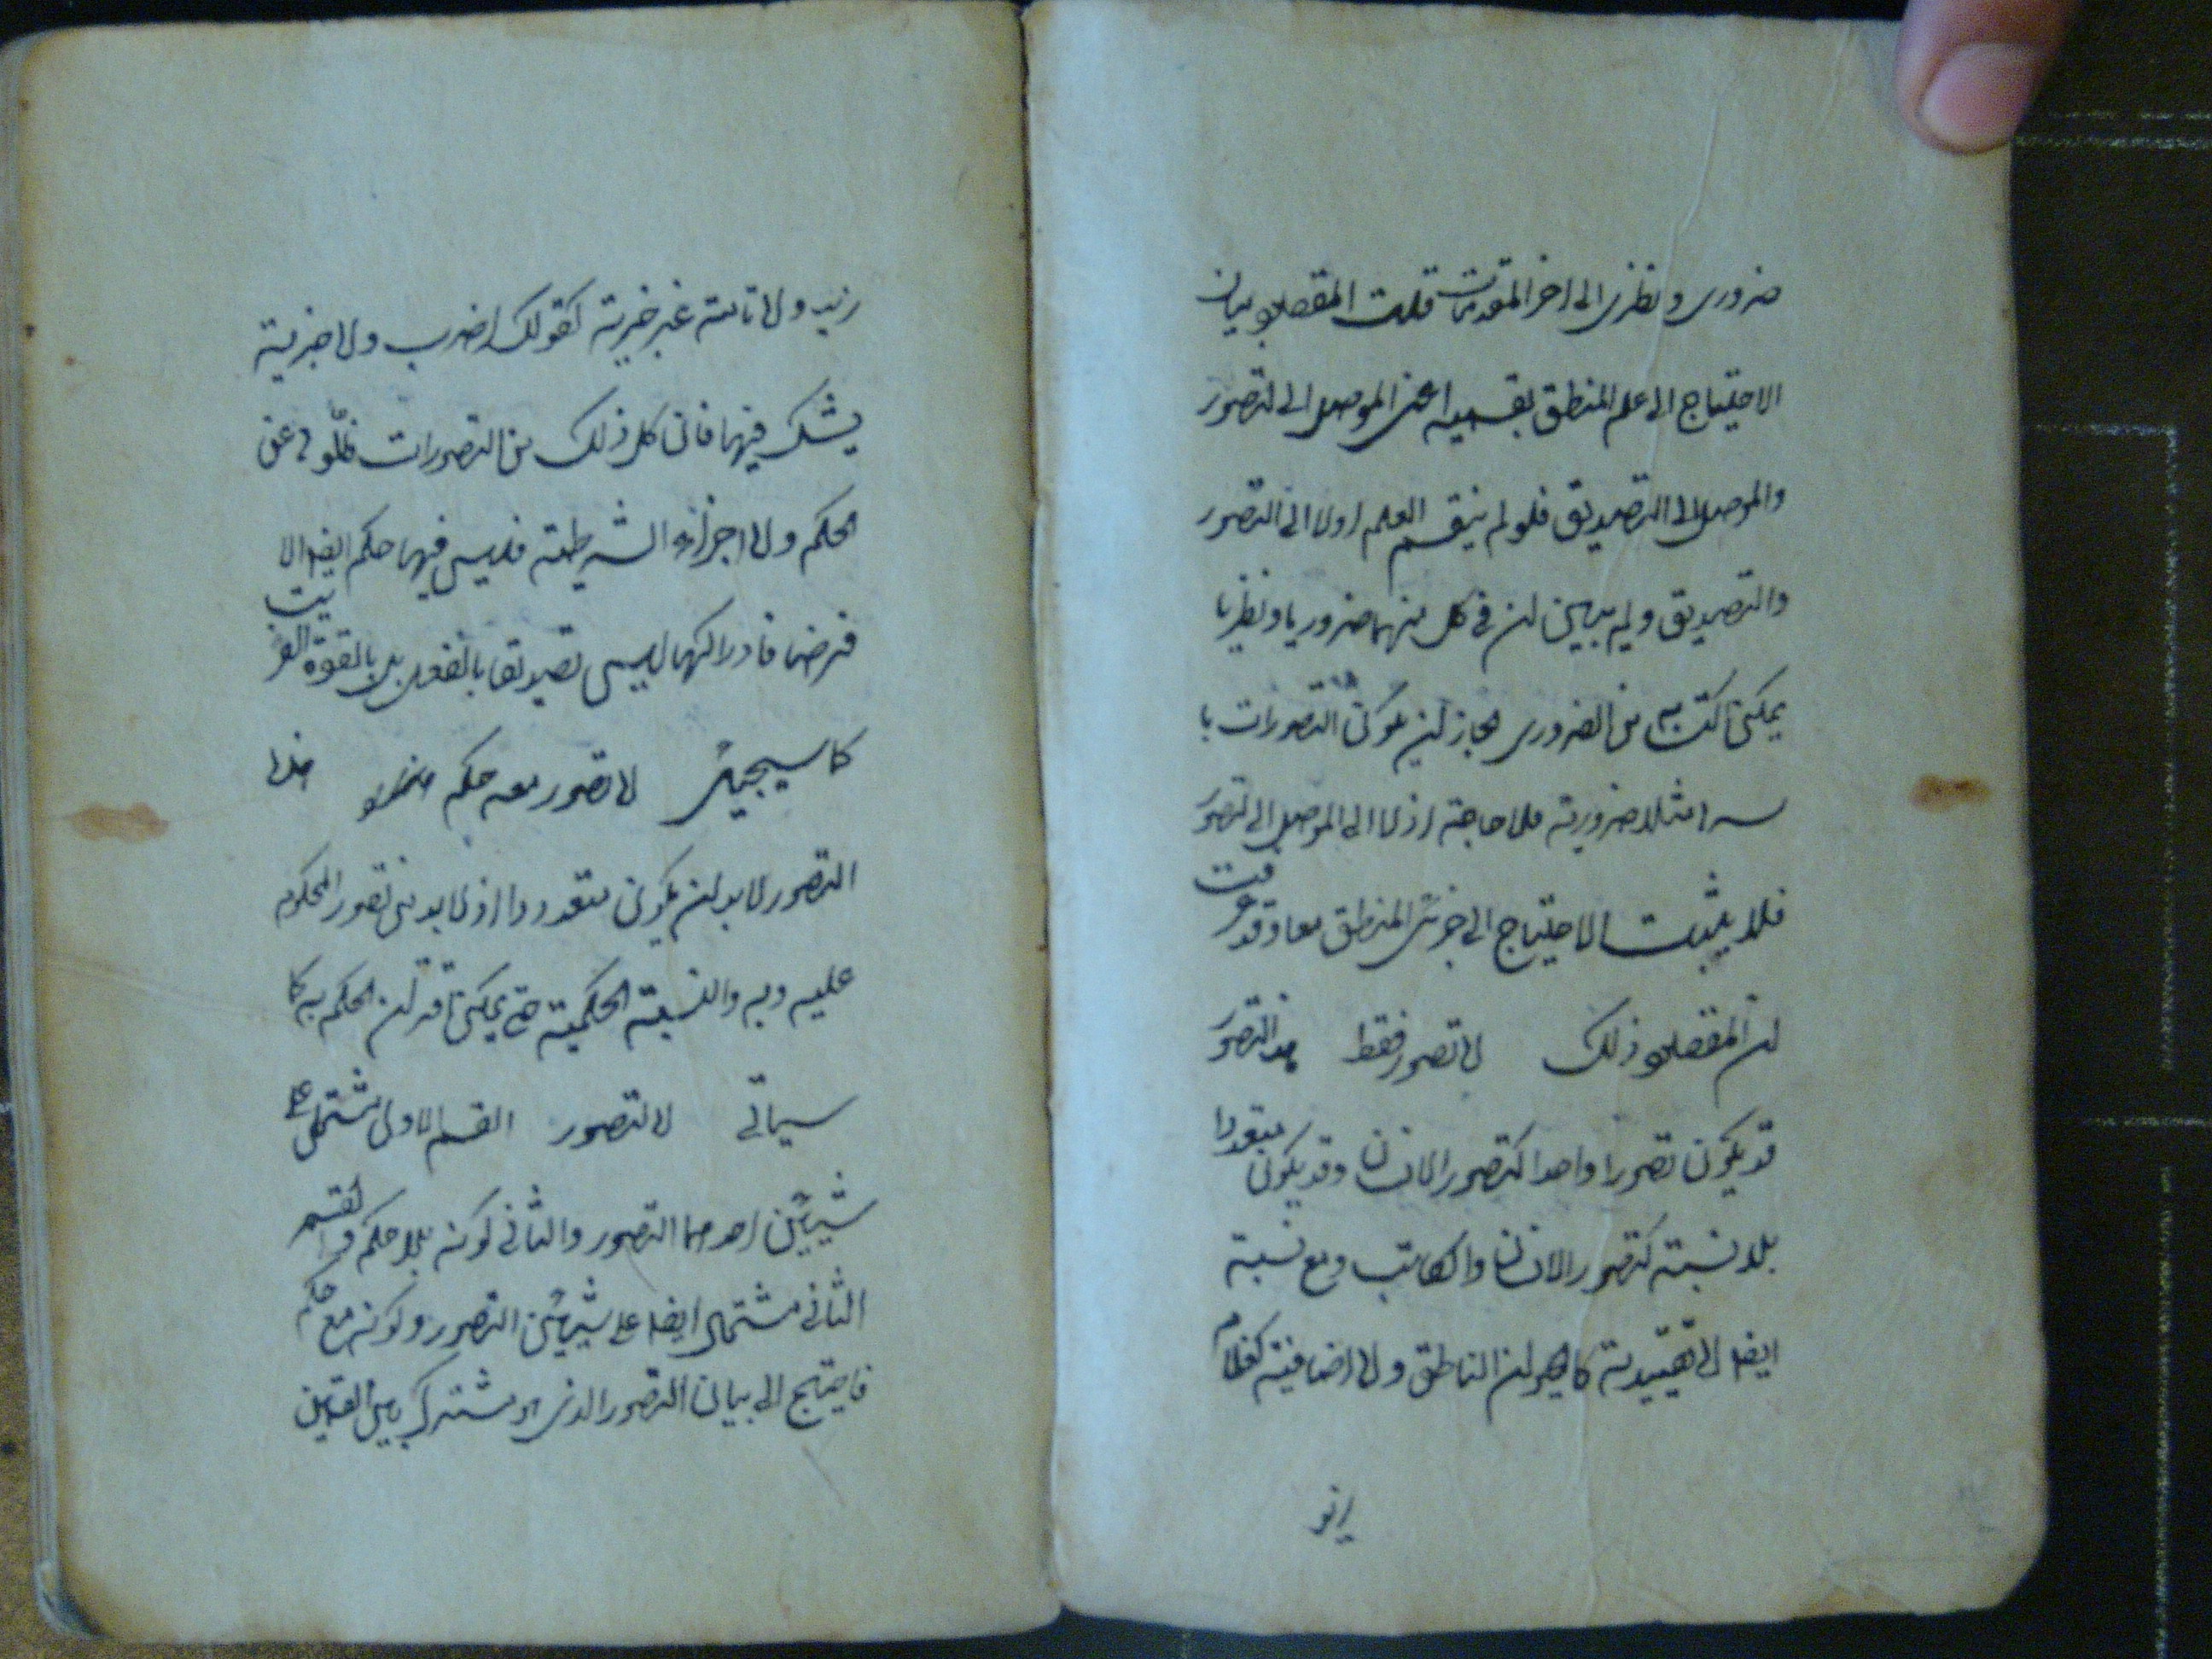 ضروری ونظری الی اخر المقدمات قلت المقصود بیان
الاحتیاج الی علم المنطق بقسمیه اعنی الموصل الی التصور
والموصل الی التصدیق فلو لم ینقسم العلم اولا الی التصور
والتصدیق ولم یبین ان فی کل منهما ضروریا ونظریا
یمکن اکتسابه من الضروری لجاز ان یکون التصورات با
سرها مثلا ضروریة فلا حاجة اذا الی الموصل الی التصور
فلا یثبت الاحتیاج الی جزئی المنطق معا وقد عرفت
ان المقصود ذلک تصور فقط هذا التصور
قد یکون تصورا واحدا کتصور الانسان وقد یکون متعددا
بلا نسبة کتصور الانسان والکاتب ومع نسبة
ایضا تقییدیة کالحیوان الناطق ولا اضافیة کغلام
زید ولا تامة غیر خبریة کقولک اضرب ولا خبریة
یشک فیها فان کل ذلک من التصورات لخلوه عن
الحکم ولا اجزاء الشرطیة فلیس فیها حکم ایضا الا
فرضا فادراکها لیس تصدیقا بالفعل بل بالقوة القریبة
کما سیجیئ تصور معه حکم هذا
التصور لابد ان یکون متعددا اذ لابد من تصور المحکوم
علیه وبه والنسبة الحکمیة حتی یمکن اقتران الحکم به کما
سیاتی التصور القسم الاول مشتمل علی
شیئین احدهما التصور والثانی کونه بلا حکم والقسم
الثانی مشتمل ایضا علی شیئین التصور وکونه مع حکم
فاحتیج الی بیان التصور الذی هو مشترک بین القسمین